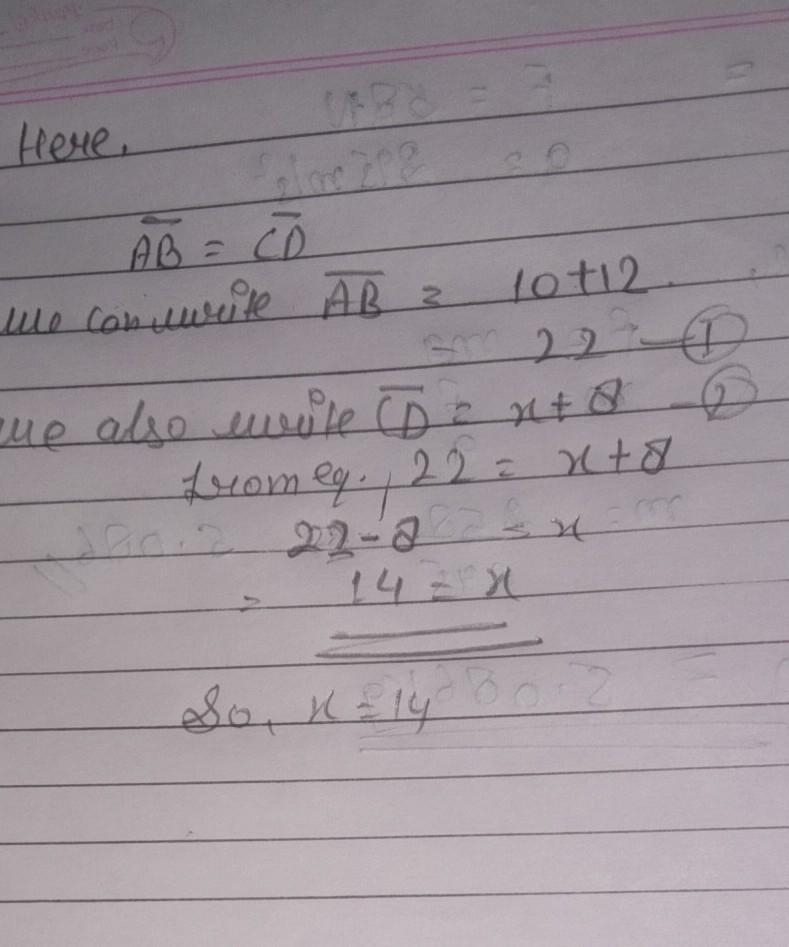 Here,
A̅B̅ = C̅D̅
we can write A̅B̅ = 10+12
22 — ①
we also write C̅D̅ = x+8 — ②
from eq., 22 = x+8
22-8 = x
= 14 = x
So, x=14